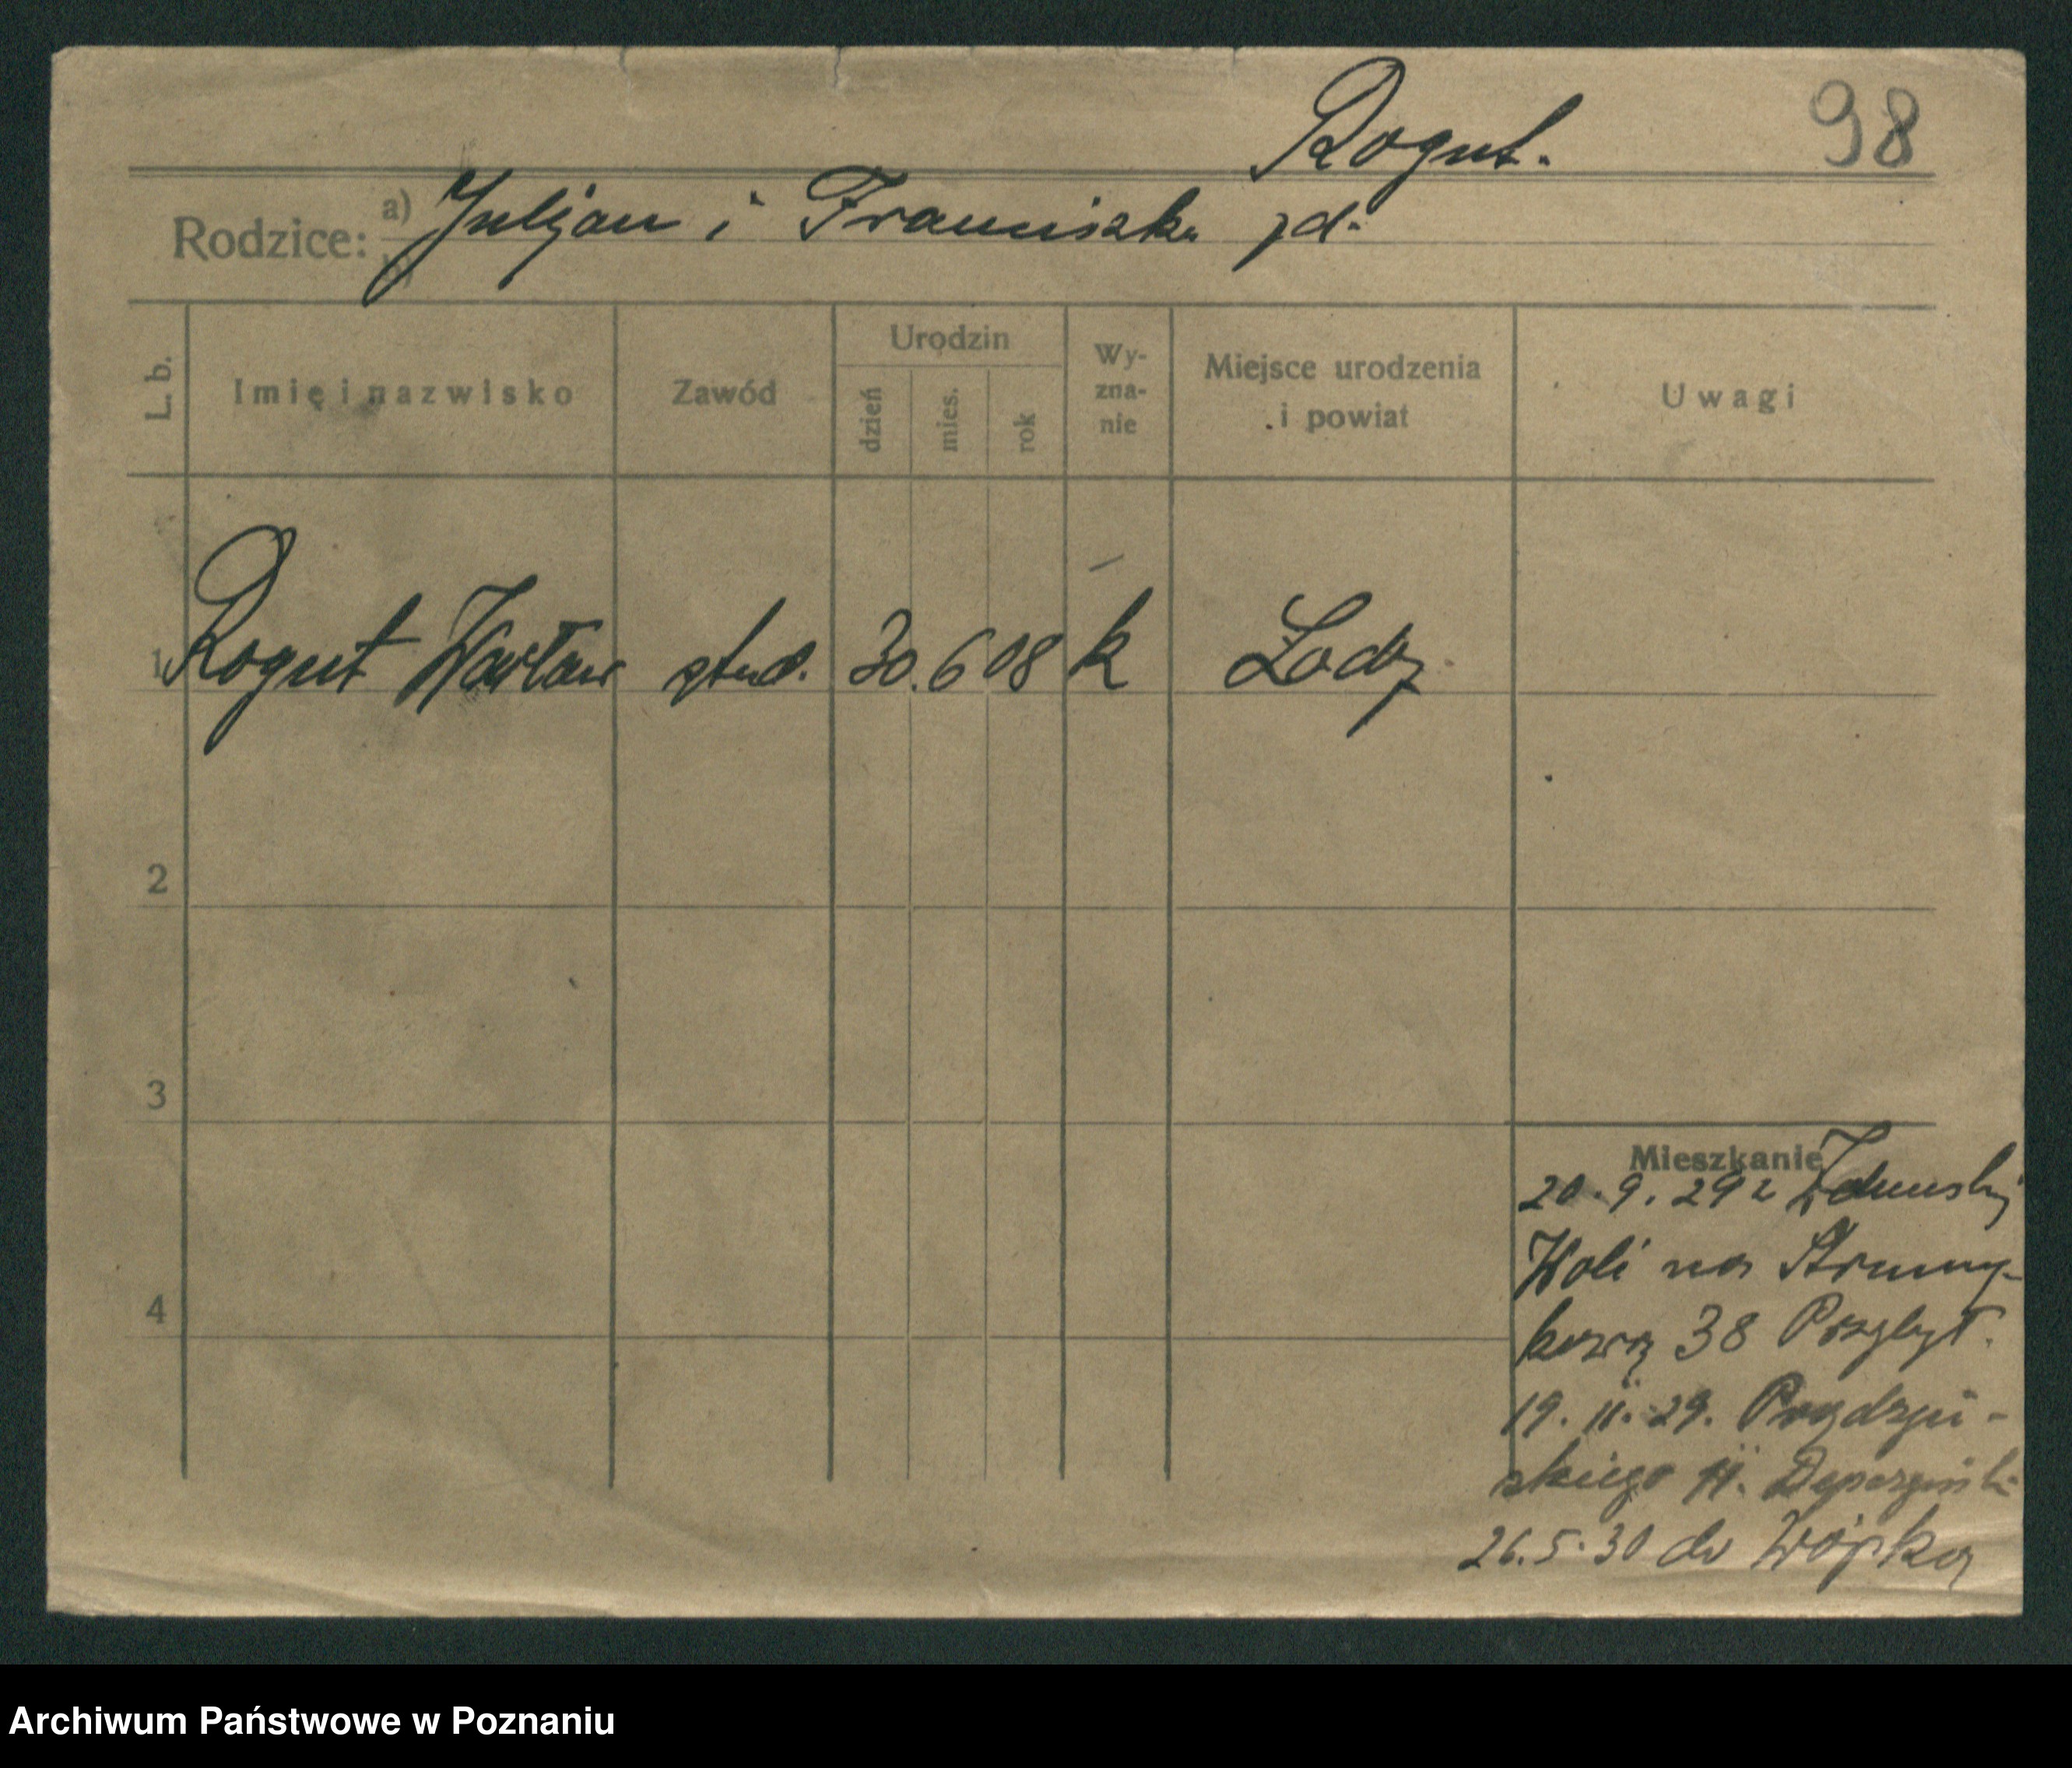 98
Rogut.
Rodzice: a) Juljan i Franciszka zd.
b)
L. b. Imię i nazwisko Zawód Urodzin dzień mies. rok Wy-zna-nie Miejsce urodzenia i powiat Uwagi
1 Rogut Wacław stud. 30. 6 08 k Lodz
2
3
4
Mieszkanie
20.9.29 z Zduńskiej
Woli na
38 Przybył.
19. 11. 29.
skiego 11.
26.5.30 do
Archiwum Państwowe w Poznaniu